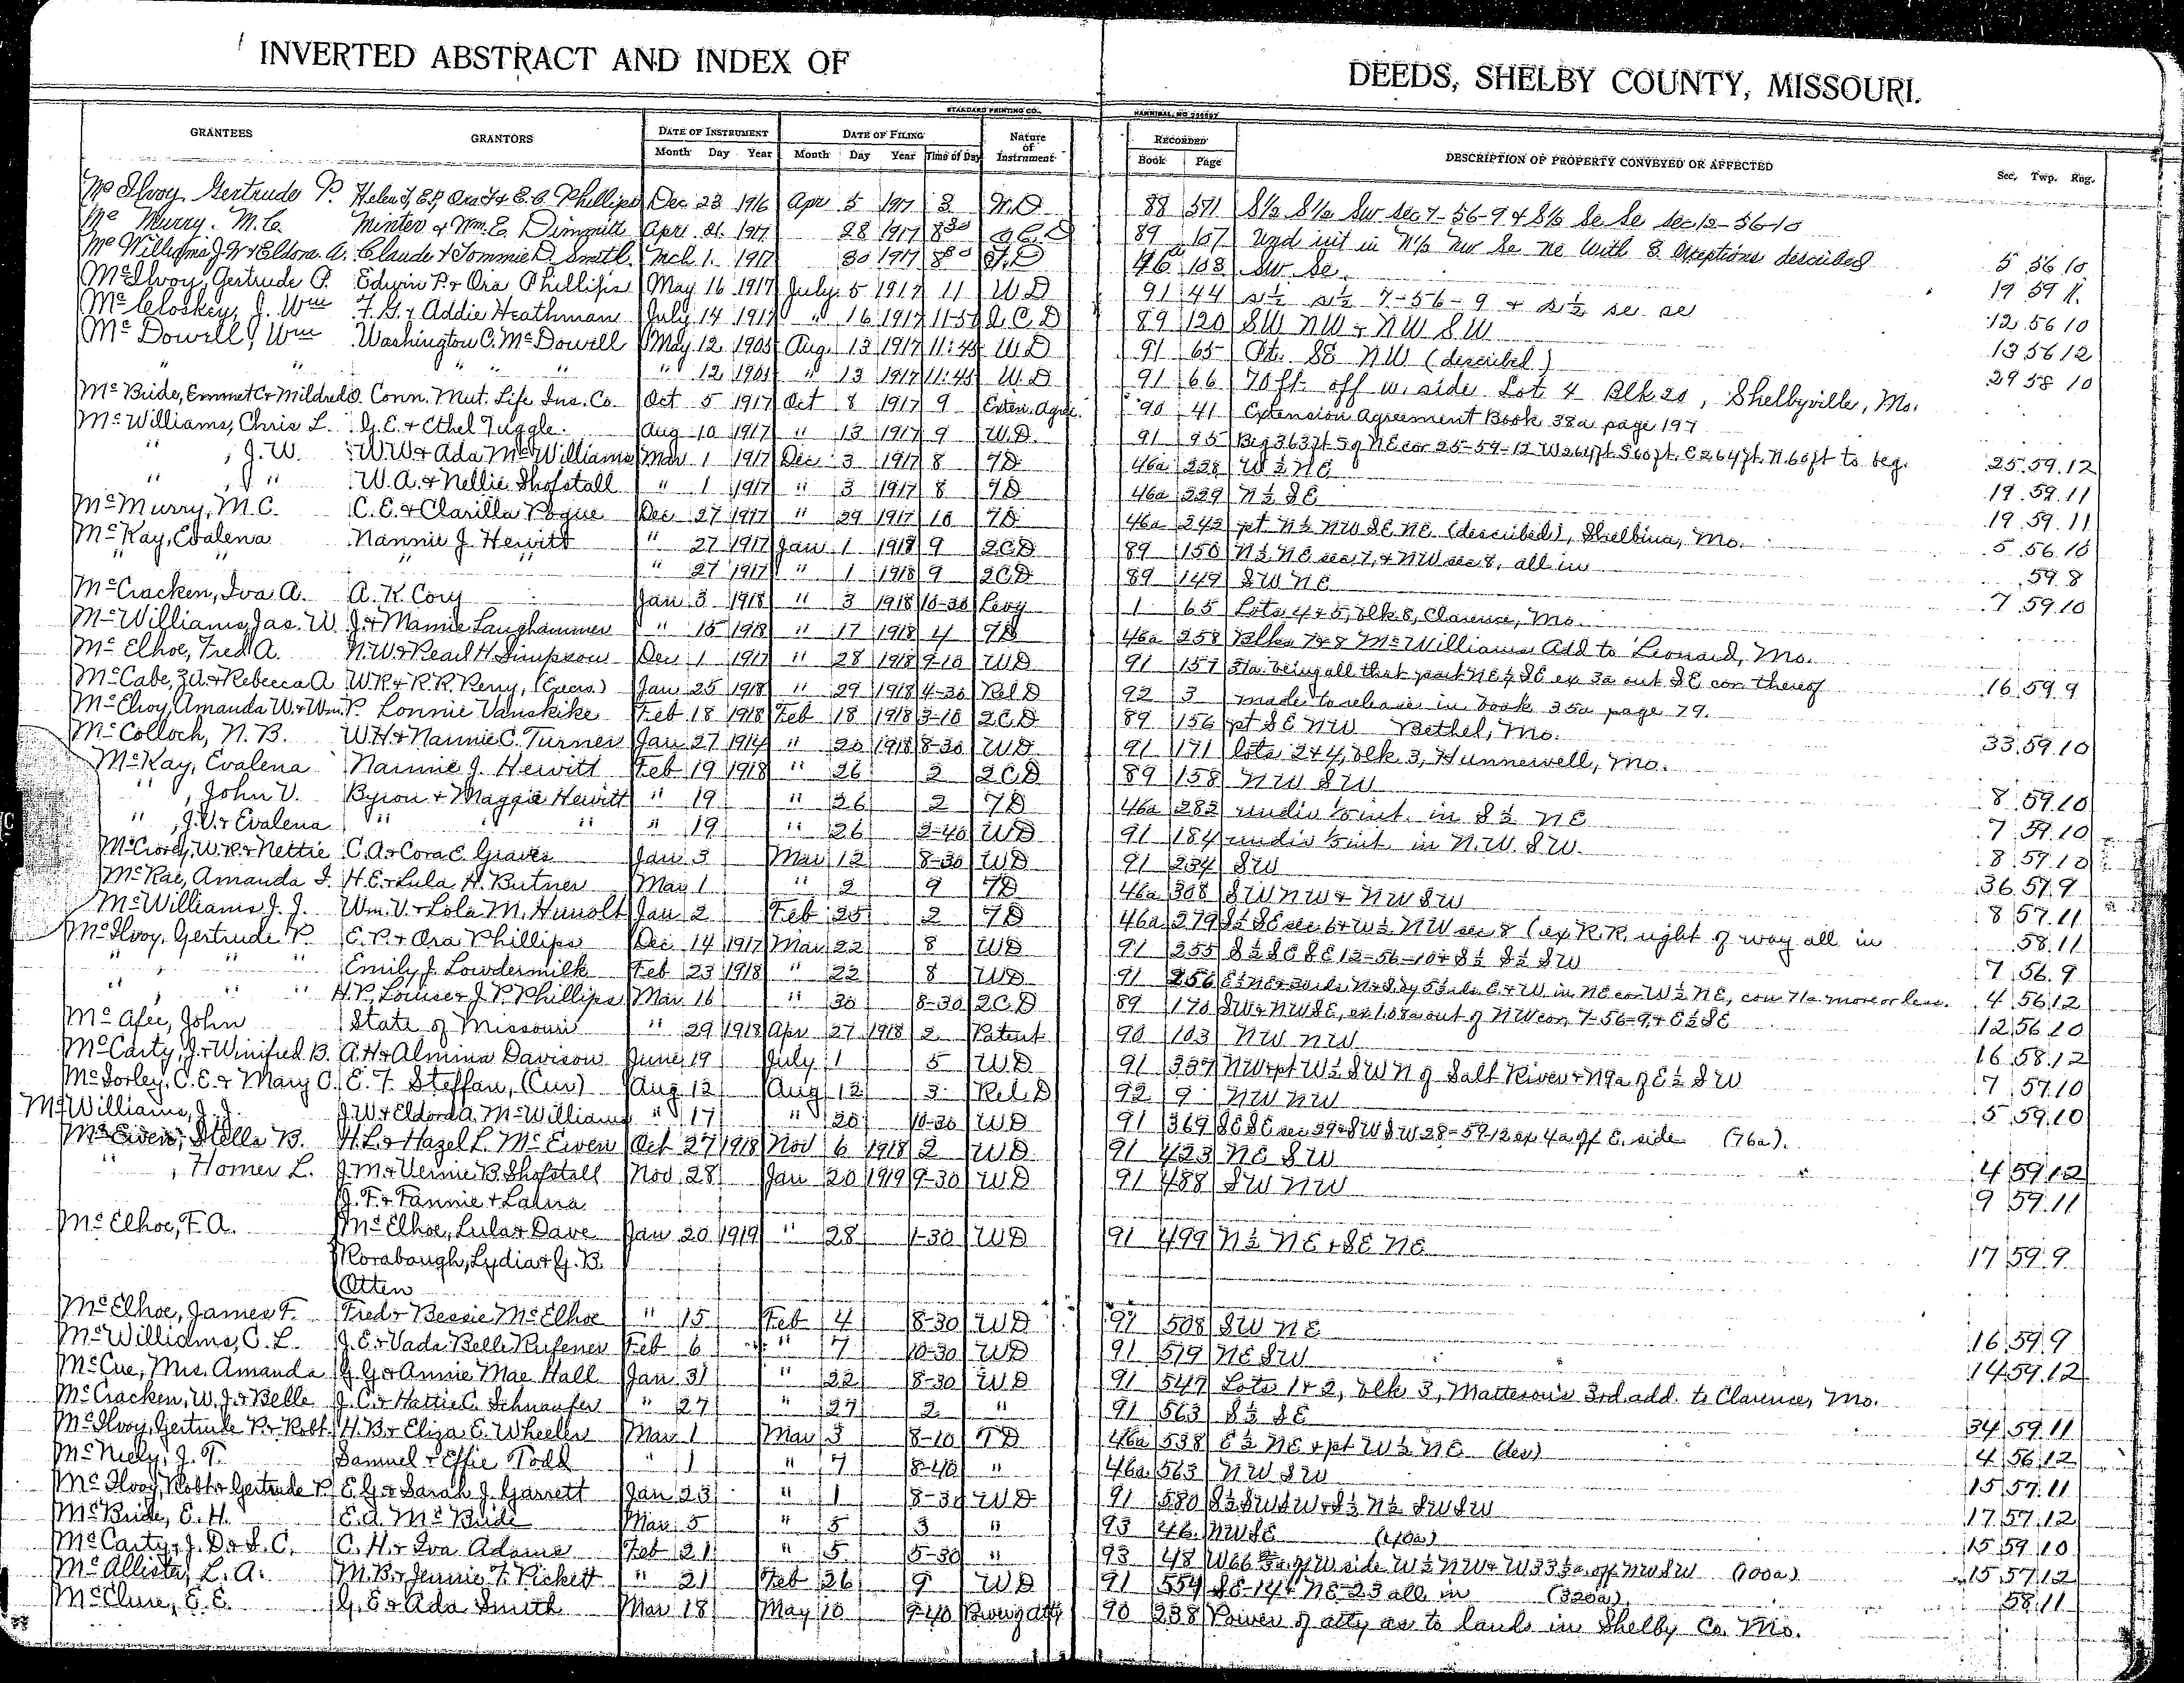 INVERTED ABSTRACT AND INDEX OF DEEDS, SHELBY COUNTY, MISSOURI.
STANDARD PRINTING CO. HANNIBAL, MO
GRANTEES GRANTORS DATE OF INSTRUMENT DATE OF FILING Nature of Instrument RECORDED DESCRIPTION OF PROPERTY CONVEYED OR AFFECTED
Month Day Year Month Day Year Time of Day Book Page Sec. Twp. Rng.
McIlvoy, Gertrude P. Helen J, E.P, Ora J & E.C. Phillips Dec 23 1916 Apr 5 1917 3 88 571 S½ S½ Sw sec 7-56-9 & S½ Se Se sec 12-56-10
Mc Murry. M.C. Minter & Wm. E. Dimmitt Apr. 21. 1917 28 1917 8 30 Q.C.D 89 107 Und int in N½ Nw Se Ne with 8 exceptions described 5 56 10
Mc Williams J.W & Eldora. A. Claude & Tommie D. Smith. Mch 1. 1917 30 1917 8 30 T.D 46a 103 Sw Se. 19 59 11.
McIlvoy, Gertrude P. Edwin P. & Ora Phillips May 16 1917 July 5 1917 11 W D 91 44 S½ S½ 7-56-9 & S½ se se 12 56 10
McCloskey, J. Wm F. G. & Addie Heathman July 14 1917 " 16 1917 11-50 Q C D 89 120 SW NW & NW SW 13 56 12
McDowell, Wm Washington C. McDowell May 12 1905 Aug. 13 1917 11:45 W D 91 65 Pt. SE NW (described) 29 58 10
" " " " " " 12 1905 " 13 1917 11:45 W. D 91 66 70 ft. off w. side Lot 4 Blk 20, Shelbyville, Mo.
McBride, Emmet C & Mildred O. Conn. Mut. Life Ins. Co. Oct 5 1917 Oct 8 1917 9 Exten. Agre. 90 41 Extension Agreement Book 38a page 197
McWilliams, Chris L. G. E. & Ethel Tuggle. Aug 10 1917 " 13 1917 9 W.D. 91 95 Beg 363 ft S of NE cor 25-59-12 W 264 ft. S 60 ft. E 264 ft. N. 60 ft to beg. 25 59 12
" , J. W. W.W & Ada McWilliams Mar 1 1917 Dec 3 1917 8 TD 46a 228 W ½ NE 19 59 11
" , " W. A. & Nellie Shofstall " 1 1917 " 3 1917 8 TD 46a 229 N ½ SE 19 59 11
McMurry, M.C. C. E. & Clarilla Pogue Dec 27 1917 " 29 1917 10 TD 46a 242 pt N ½ NW SE NE (described), Shelbina, Mo. 5 56 10
McKay, Evalena Nannie J. Hewitt " 27 1917 Jan 1 1918 9 2CD 89 150 N ½ NE sec 7, & NW sec 8, all in 59 8
" " " " " 27 1917 " 1 1918 9 2CD 89 149 SW NE 7 59 10
McCracken, Iva A. A. K. Cory Jan 3 1918 " 3 1918 10-30 Levy 1 65 Lots 4 & 5, blk 8, Clarence, Mo.
McWilliams, Jas. W. J. & Mamie Laughammer " 15 1918 " 17 1918 4 TD 46a 258 Blks 7 & 8 McWilliams Add to Leonard, Mo.
McElhoe, Fred A. N.W & Pearl H. Simpson Dec 1 1917 " 28 1918 9-10 WD 91 157 37a. being all that part NE ¼ SE ex 3a out SE cor. thereof 16 59 9
McCabe, & Rebecca A W.R & R.R. Perry, (Exers.) Jan 25 1918 " 29 1918 4-30 Rel D 92 3 made to release in book 35a page 79.
McElroy, Amanda W. & Wm. P. Lonnie Vanskike Feb 18 1918 Feb 18 1918 3-10 2CD 89 156 pt SE NW Bethel, Mo. 33 59 10
McColloch, N. B. W.H & Nannie C. Turner Jan 27 1914 " 20 1918 8-30 WD 91 171 lots 2 & 4, blk 3, Hunnewell, Mo.
McKay, Evalena Nannie J. Hewitt Feb 19 1918 " 26 2 2CD 89 158 NW SW 8 59 10
" , John V. Byron & Maggie Hewitt " 19 " 26 2 TD 46a 282 undiv int. in S ½ NE 7 59 10
" , J.V. & Evalena " " " 19 " 26 2-40 WD 91 184 undiv int. in N.W. SW. 8 59 10
W.R. & Nettie C.A & Cora E. Graves Jan 3 Mar 12 8-30 WD 91 234 SW 36 57 9
McRae, Amanda J. H. E. & Lula H. Butner Mar 1 " 2 9 TD 46a 308 SW NW & NW SW 8 57 11
McWilliams J. J. Wm. V. & Lola M. Hunolt Jan 2 Feb 25 2 TD 46a 279 S½ SE sec 6 & W½ NW sec 8 (ex R.R. right of way all in 58 11
McIlvoy, Gertrude P. E. P. & Ora Phillips Dec 14 1917 Mar 22 8 WD 91 255 S½ SE SE 12-56-10 & S½ S½ SW 7 56 9
" , " " Emily J. Lowdermilk Feb 23 1918 " 22 8 WD 91 256 E½ NE & N & S by E & W in NE cor W½ NE, con 71a more or less. 4 56 12
" , " " H.P. Louise & J. P. Phillips Mar 16 " 30 8-30 2CD 89 170 SW & NW SE, ex 1.08a out of NW cor, 7-56-9, & E½ SE 12 56 10
McAfee, John State of Missouri " 29 1918 Apr 27 1918 2 Patent 90 103 NW NW 16 58 12
McCarty, J. & Winifred B. A.H & Almina Davison June 19 July 1 5 WD 91 337 NW & pt W½ SW N of Salt River & N 9a of E½ SW 7 57 10
McSorley, C. E. & Mary O. E. F. Steffan, (Cur) Aug 12 Aug 12 3 Rel. D 92 9 NW NW 5 59 10
McWilliams, J. J. J.W & Eldora A. McWilliams " 17 " 20 10-30 WD 91 369 SE SE sec 29 & SW SW 28-59-12 ex 4a off E. side (76a).
McEwen, Stella B. H. L. & Hazel L. McEwen Oct 27 1918 Nov 6 1918 2 WD 91 423 NE SW 4 59 12
" , Homer L. J. M & Vernie B. Shofstall Nov 28 Jan 20 1919 9-30 WD 91 488 SW NW 9 59 11
J. F. & Fannie & Laura
McElhoe, F.A. McElhoe, Lula & Dave Jan 20 1919 " 28 1-30 WD 91 499 N ½ NE & SE NE 17 59 9
Rorabaugh, Lydia & G. B.
Otten
McElhoe, James F. Fred & Bessie McElhoe " 15 Feb 4 8-30 WD 91 508 SW NE 16 59 9
McWilliams, C. L. J. E. & Vada Belle Rufener Feb 6 " 7 10-30 WD 91 519 NE SW 14 59 12
McCue, Mrs. Amanda G. G. & Annie Mae Hall Jan 31 " 22 8-30 WD 91 547 Lots 1 & 2, blk 3, Matteson's 3rd. add. to Clarence, Mo.
McCracken, W. J. & Belle J. C. & Hattie C. Schnaufer " 27 " 27 2 " 91 563 S ½ SE 34 59 11
McIlvoy, Gertrude P. & Robt. H. B. & Eliza E. Wheeler Mar 1 Mar 3 8-10 TD 46a 538 E ½ NE & pt W ½ NE (des) 4 56 12
McNeely, J. T. Samuel & Effie Todd " 1 " 7 8-40 " 46a 563 NW SW 15 57 11
McIlvoy, Robt & Gertrude P E. G. & Sarah J. Garrett Jan 23 " 1 8-30 WD 91 580 S½ SW SW & S½ N½ SW SW 17 57 12
McBride, E. H. E. A. McBride Mar 5 " 5 3 " 93 46 NW SE (40a) 15 59 10
McCarty, J. D. & S. C. C. H. & Iva Adams Feb 21 " 5 5-30 " 93 48 W 66 ⅔a off W side W½ NW & W 33⅓a off NW SW (100a) 15 57 12
McAllister, L. A. M. B. & Jennie F. Pickett " 21 Feb 26 9 WD 91 554 SE-14 & NE-23 all in (320a). 58 11
McClure, E. E. G. E & Ada Smith Mar 18 May 10 9-40 Pwr of atty 90 238 Power of atty as to lands in Shelby Co. Mo.